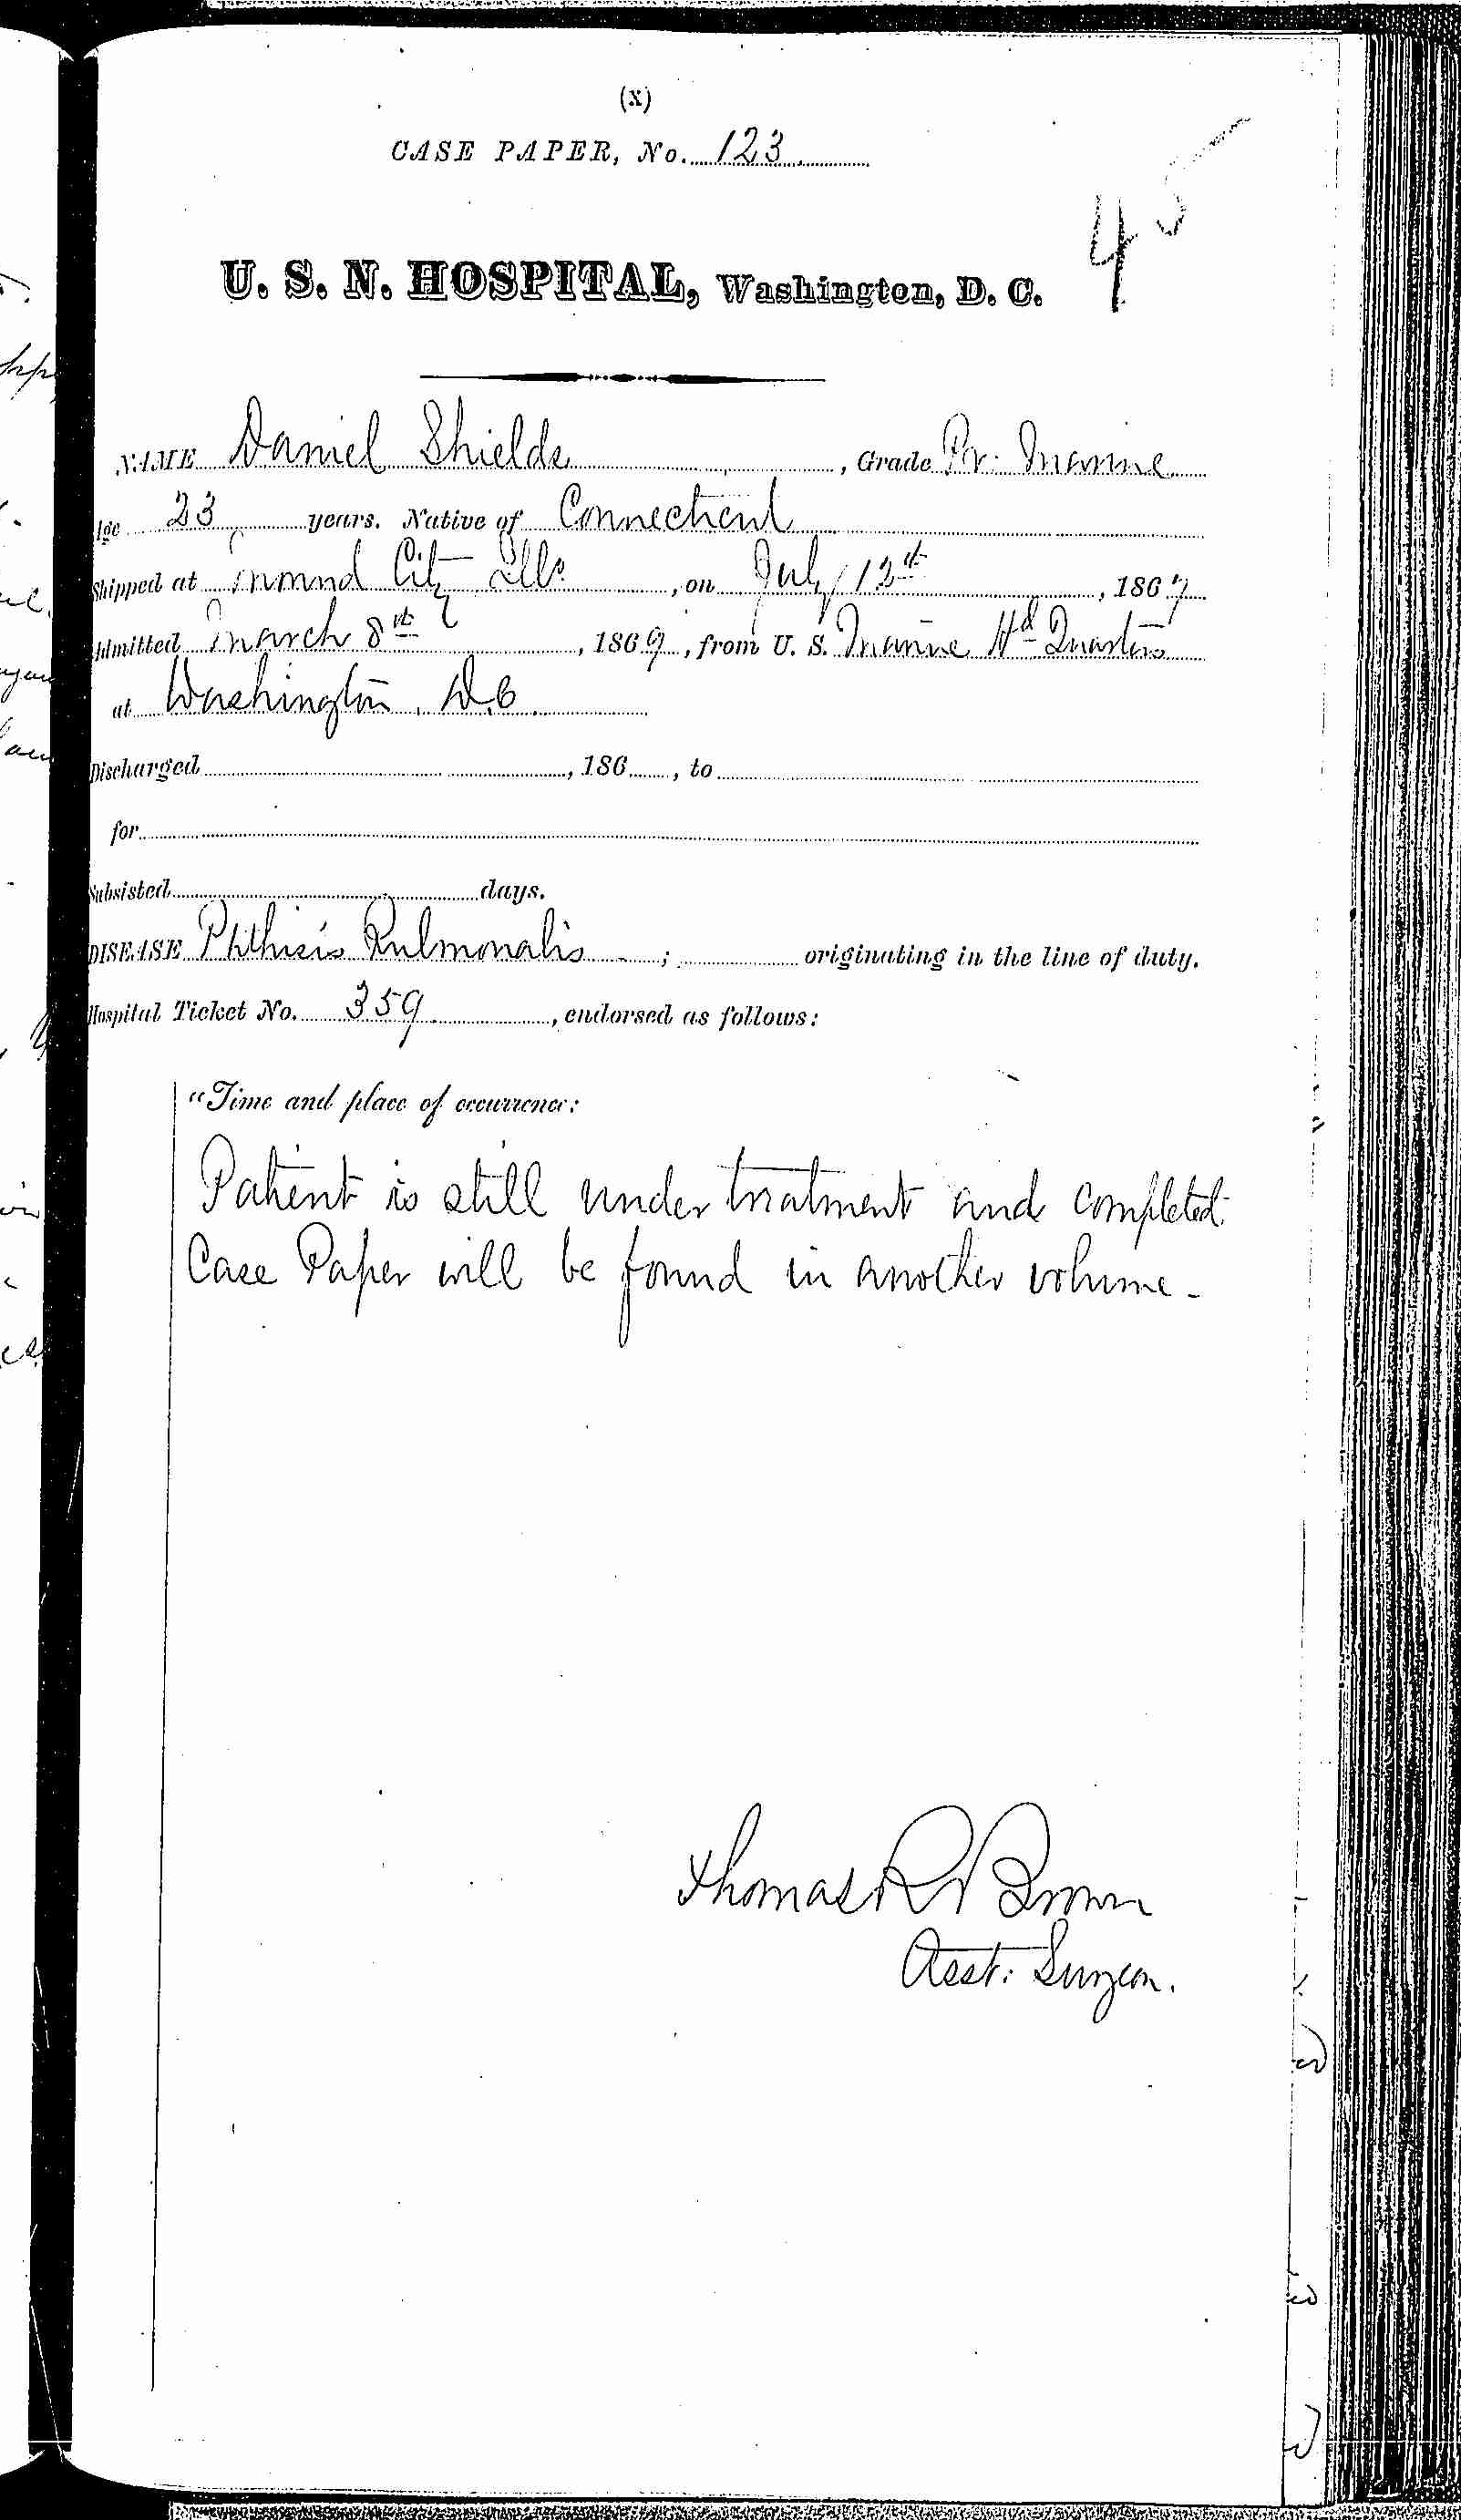 (x)
CASE PAPER, No. 123.
45
U. S. N. HOSPITAL, Washington, D. C.
NAME Daniel Shields, Grade Pr. Marine
Age 23 years. Native of Connecticut
Shipped at Mound City Ills, on July 12th, 1867
Admitted March 8th, 1869, from U. S. Marine Hd Quarters
at Washington, D.C.
Discharged, 186, to
for
Subsisted days.
DISEASE Phthisis Pulmonalis; originating in the line of duty.
Hospital Ticket No. 359, endorsed as follows:
"Time and place of occurrence:
Patient is still under treatment and completed
Case Paper will be found in another volume.
Thomas R Brown
Asst. Surgeon.